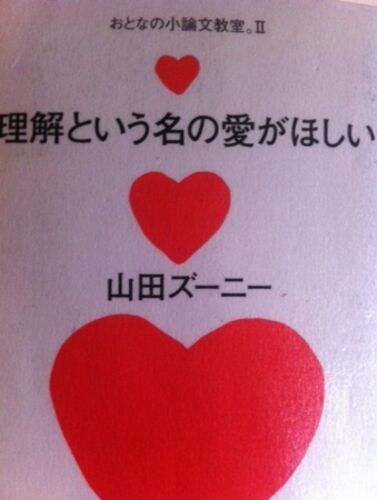 おとなの小論文教室。II
理解という名の愛がほしい
山田ズーニー